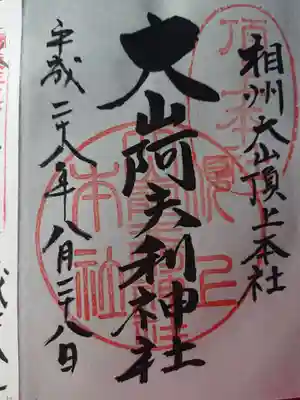 相州大山頂上本社
大山阿夫利神社
平成二十八年八月二十八日